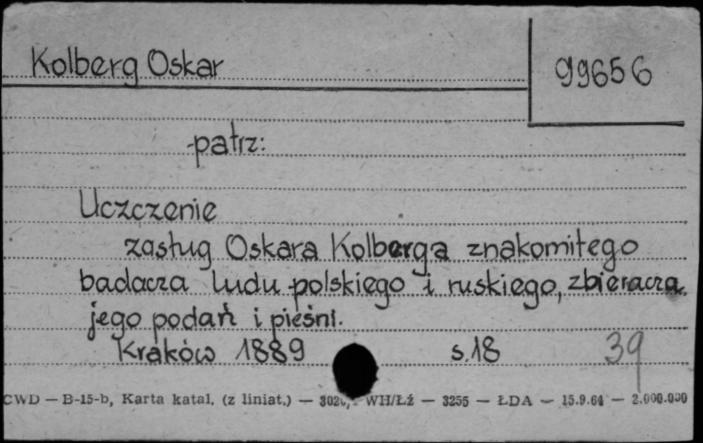 Kolberg Oskar
99656
-patrz:
Uczczenie
zasług Oskara Kolberga znakomitego
badacza ludu polskiego i ruskiego, zbieracza
jego podań i pieśni.
Kraków 1889 s.18 39
CWD — B-15-b, Karta katal. (z liniat.) — WH/Łż — 3255 — ŁDA — 15.9.64 — 2.000.000